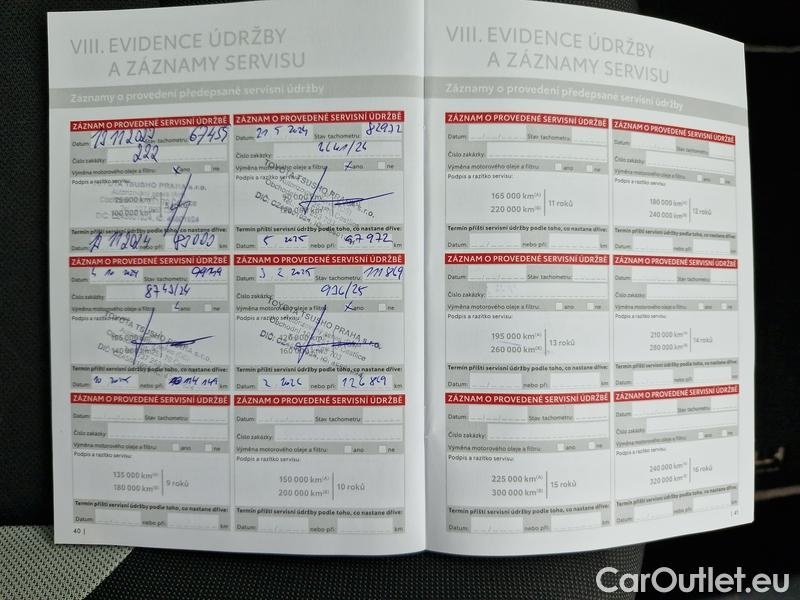 VIII. EVIDENCE ÚDRŽBY
A ZÁZNAMY SERVISU
Záznamy o provedení předepsané servisní údržby
ZÁZNAM O PROVEDENÍ SERVISNÍ ÚDRŽBĚ
Datum: 13 11 2023 Stav tachometru: 67455
Číslo zakázky: 222
Výměna motorového oleje a filtru: x ano ne
Podpis a razítko servisu:
TOYOTA TSUSHO PRAHA s.r.o.
75 000 km
100 000 km
Termín příští servisní údržby podle toho, co nastane dříve:
Datum: 11 2024 nebo při: 83000 km
ZÁZNAM O PROVEDENÍ SERVISNÍ ÚDRŽBĚ
Datum: 21 5 2024 Stav tachometru: 82972
Číslo zakázky: 2441/24
Výměna motorového oleje a filtru: x ano ne
Podpis a razítko servisu:
TOYOTA TSUSHO PRAHA s.r.o.
Termín příští servisní údržby podle toho, co nastane dříve:
Datum: 5 2025 nebo při: 97972 km
ZÁZNAM O PROVEDENÍ SERVISNÍ ÚDRŽBĚ
Datum: 4 10 2024 Stav tachometru:
Číslo zakázky: 8743/24
Výměna motorového oleje a filtru: ano ne
Podpis a razítko servisu:
TOYOTA TSUSHO PRAHA s.r.o.
105 000 km
140 000 km
Termín příští servisní údržby podle toho, co nastane dříve:
Datum: 10 2025 nebo při: 114 149 km
ZÁZNAM O PROVEDENÍ SERVISNÍ ÚDRŽBĚ
Datum: 3 2 2025 Stav tachometru: 111849
Číslo zakázky: 936/25
Výměna motorového oleje a filtru: ano ne
Podpis a razítko servisu:
TOYOTA TSUSHO PRAHA s.r.o.
120 000 km
160 000 km
Termín příští servisní údržby podle toho, co nastane dříve:
Datum: 2 2026 nebo při: 126849 km
ZÁZNAM O PROVEDENÍ SERVISNÍ ÚDRŽBĚ
Datum: Stav tachometru:
Číslo zakázky:
Výměna motorového oleje a filtru: ano ne
Podpis a razítko servisu:
135 000 km(A)
180 000 km(B)
9 roků
Termín příští servisní údržby podle toho, co nastane dříve:
Datum: nebo při: km
ZÁZNAM O PROVEDENÍ SERVISNÍ ÚDRŽBĚ
Datum: Stav tachometru:
Číslo zakázky:
Výměna motorového oleje a filtru: ano ne
Podpis a razítko servisu:
150 000 km(A)
200 000 km(B)
10 roků
Termín příští servisní údržby podle toho, co nastane dříve:
Datum: nebo při: km
40 |
VIII. EVIDENCE ÚDRŽBY
A ZÁZNAMY SERVISU
Záznamy o provedení předepsané servisní údržby
ZÁZNAM O PROVEDENÍ SERVISNÍ ÚDRŽBĚ
Datum: Stav tachometru:
Číslo zakázky:
Výměna motorového oleje a filtru: ano ne
Podpis a razítko servisu:
165 000 km(A)
220 000 km(B)
11 roků
Termín příští servisní údržby podle toho, co nastane dříve:
Datum: nebo při: km
ZÁZNAM O PROVEDENÍ SERVISNÍ ÚDRŽBĚ
Datum: Stav tachometru:
Číslo zakázky:
Výměna motorového oleje a filtru: ano ne
Podpis a razítko servisu:
180 000 km(A)
240 000 km(B)
12 roků
Termín příští servisní údržby podle toho, co nastane dříve:
Datum: nebo při: km
ZÁZNAM O PROVEDENÍ SERVISNÍ ÚDRŽBĚ
Datum: Stav tachometru:
Číslo zakázky:
Výměna motorového oleje a filtru: ano ne
Podpis a razítko servisu:
195 000 km(A)
260 000 km(B)
13 roků
Termín příští servisní údržby podle toho, co nastane dříve:
Datum: nebo při: km
ZÁZNAM O PROVEDENÍ SERVISNÍ ÚDRŽBĚ
Datum: Stav tachometru:
Číslo zakázky:
Výměna motorového oleje a filtru: ano ne
Podpis a razítko servisu:
210 000 km(A)
280 000 km(B)
14 roků
Termín příští servisní údržby podle toho, co nastane dříve:
Datum: nebo při: km
ZÁZNAM O PROVEDENÍ SERVISNÍ ÚDRŽBĚ
Datum: Stav tachometru:
Číslo zakázky:
Výměna motorového oleje a filtru: ano ne
Podpis a razítko servisu:
225 000 km(A)
300 000 km(B)
15 roků
Termín příští servisní údržby podle toho, co nastane dříve:
Datum: nebo při: km
ZÁZNAM O PROVEDENÍ SERVISNÍ ÚDRŽBĚ
Datum: Stav tachometru:
Číslo zakázky:
Výměna motorového oleje a filtru: ano ne
Podpis a razítko servisu:
240 000 km(A)
320 000 km(B)
16 roků
Termín příští servisní údržby podle toho, co nastane dříve:
Datum: nebo při: km
| 41
CarOutlet.eu